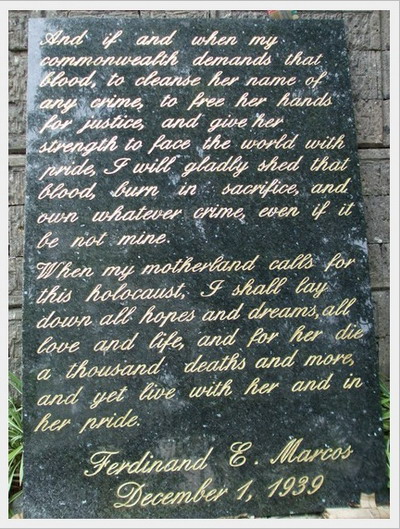 And if and when my
commonwealth demands that
blood, to cleanse her name of
any crime, to free her hands
for justice, and give her
strength to face the world with
pride, I will gladly shed that
blood, burn in sacrifice, and
own whatever crime, even if it
be not mine.
When my motherland calls for
this holocaust, I shall lay
down all hopes and dreams, all
love and life, and for her die
a thousand deaths and more,
and yet live with her and in
her pride.
Ferdinand E. Marcos
December 1, 1939